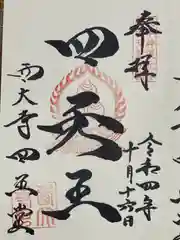 奉拝
令和四年
十月十六日
四天王
西大寺四王堂